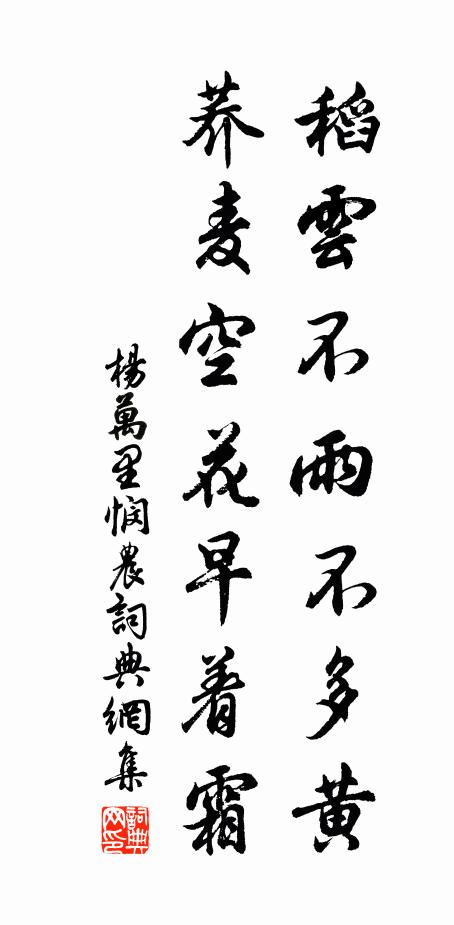 稻雲不雨不多黄
荞麦空花早着霜
楊萬里憫農詞典網集
詞典网印